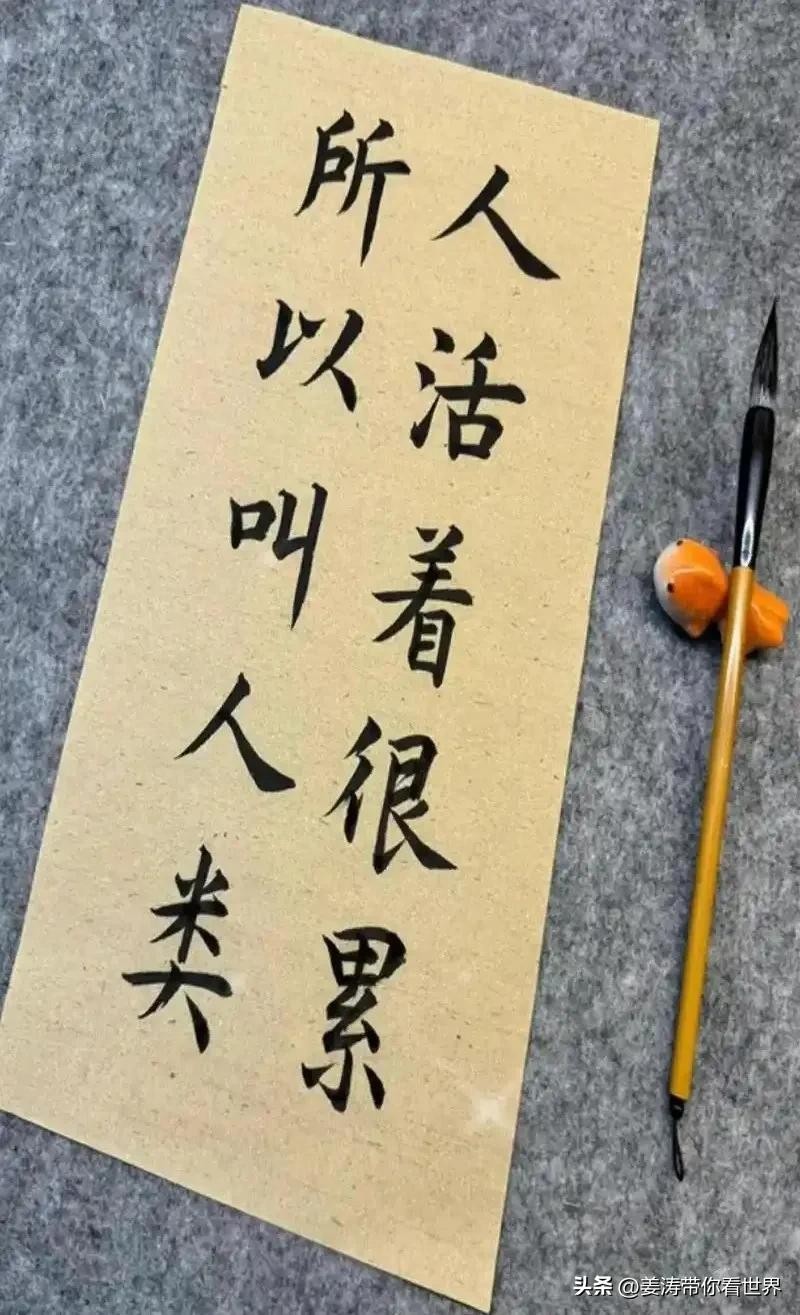 人活着很累
所以叫人类
头条 @姜涛带你看世界